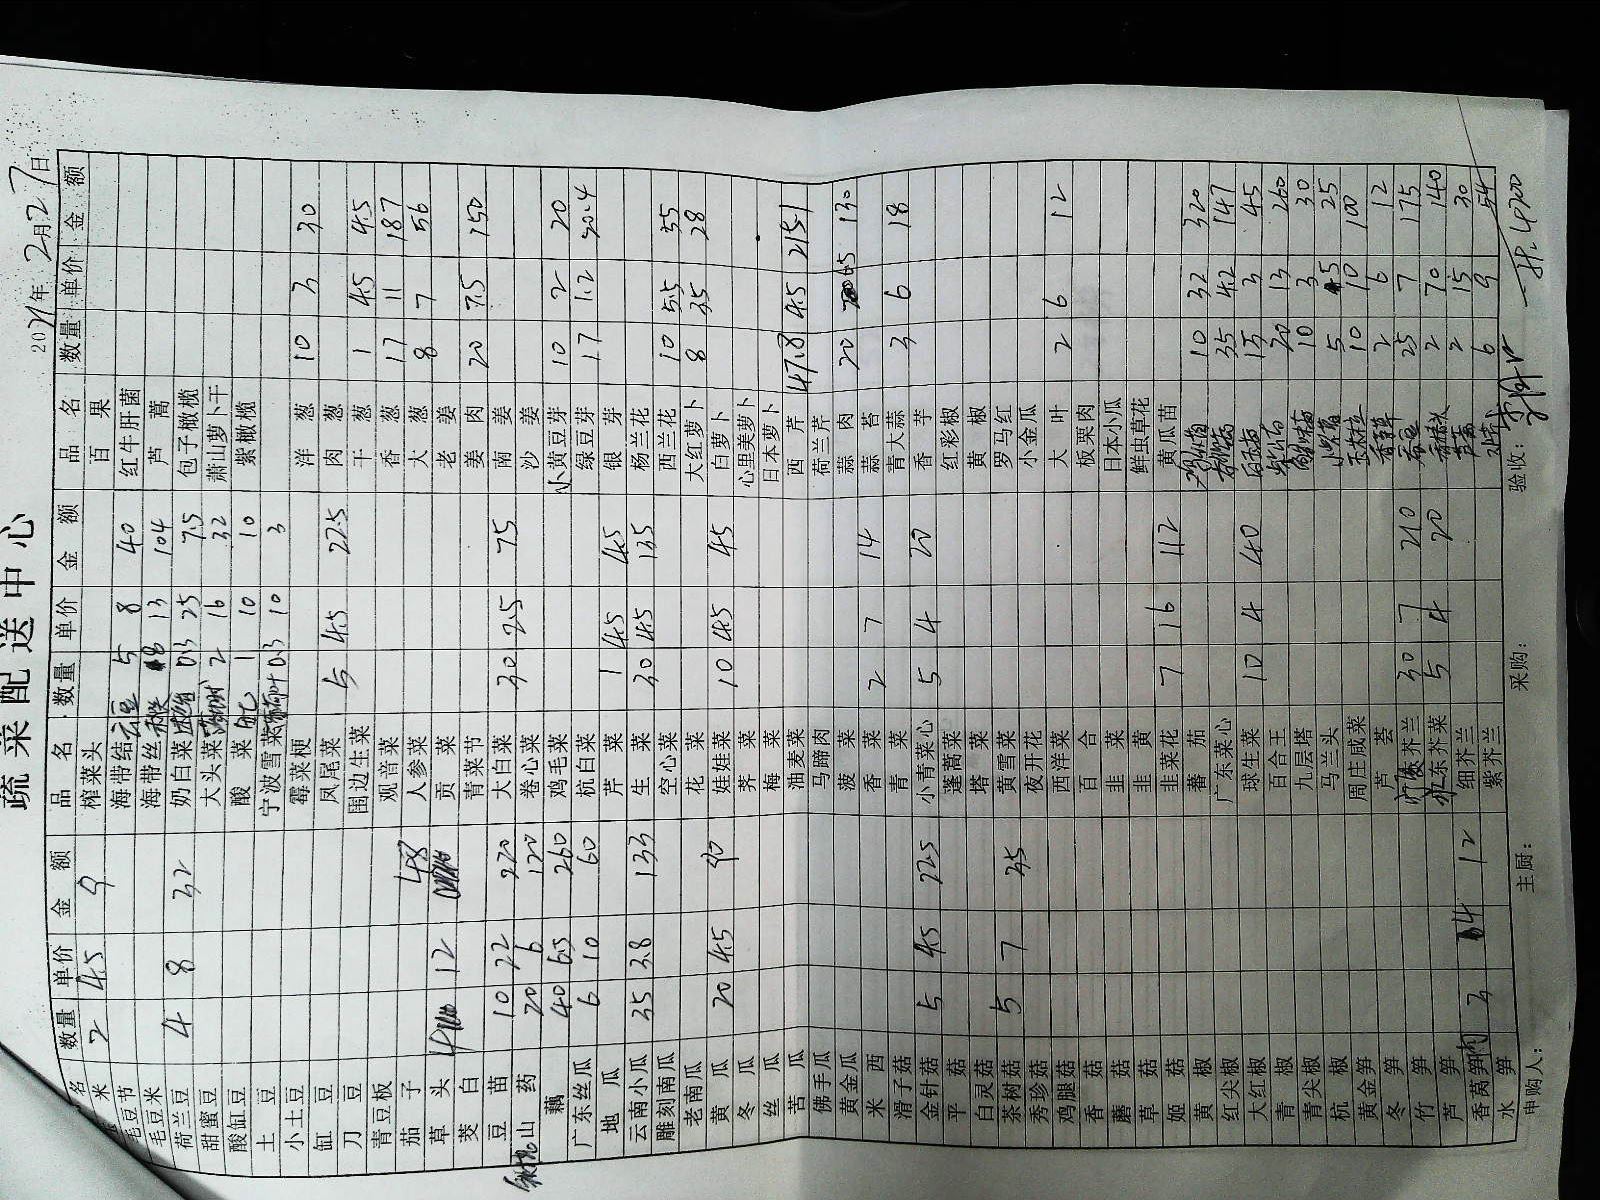 疏菜配送中心
2021年2月27日
名 数量 单价 金额
米 2 4.5 9
毛豆节
毛豆米
荷兰豆 4 8 32
甜蜜豆
酸缸豆
土豆
小土豆
缸豆
刀豆
青豆板
茄子
草头 4 12 48
茭白
豆苗 10 22 220
山药 20 6 120
藕 40 6.5 260
广东丝瓜 6 10 60
地瓜
云南小瓜 35 3.8 133
雕刻南瓜
老南瓜
黄瓜 20 4.5 90
冬瓜
丝瓜
苦瓜
佛手瓜
黄金瓜
米西
滑子菇
金针菇 5 4.5 22.5
平菇
白灵菇
茶树菇 5 7 35
秀珍菇
鸡腿菇
香菇
蘑菇
草菇
姬菇
黄椒
红尖椒
大红椒
青椒
青尖椒
杭椒
黄金笋
冬笋
竹笋
芦笋
香莴笋 3 4 12
水笋
品名 数量 单价 金额
榨菜头
海带结 云豆 5 8 40
海带丝 8 13 104
奶白菜 0.3 25 7.5
大头菜 2 16 32
酸菜 1 10 10
宁波雪菜 0.3 10 3
霉菜梗
凤尾菜 5 4.5 22.5
围边生菜
观音菜
人参菜
贡菜
青菜节
大白菜 30 2.5 75
卷心菜
鸡毛菜
杭白菜
芹菜 1 45 45
生菜 30 4.5 135
空心菜
花菜
娃娃菜 10 4.5 45
荠菜
梅菜
油麦菜
马蹄肉
菠菜
香菜 2 7 14
青菜
小青菜心 5 4 20
蓬蒿菜
塔菜
黄雪菜
夜开花
西洋菜
百合
韭菜
韭黄
韭菜花 7 16 112
蕃茄
广东菜心
球生菜 10 4 40
百合王
九层塔
马兰头
周庄咸菜
芦荟
芥兰 30 7 210
东芥菜 5 4 20
细芥兰
紫芥兰
品名 数量 单价 金额
百果
红牛肝菌
芦蒿
包子橄榄
萧山萝卜干
紫橄榄
洋葱 10 3 30
肉葱
干葱 1 45 45
香葱 17 11 187
大葱 8 7 56
老姜
姜肉 20 7.5 150
南姜
沙姜
小黄豆芽 10 2 20
绿豆芽 17 1.2 20.4
银芽
杨兰花
西兰花 10 5.5 55
大红萝卜 8 3.5 28
白萝卜
心里美萝卜
日本萝卜
西芹 47.8 4.5 215.1
荷兰芹
蒜肉 20 6.5 130
蒜苔
青大蒜 3 6 18
香芋
红彩椒
黄椒
罗马红
小金瓜
大叶 2 6 12
板栗肉
日本小瓜
鲜虫草花
黄瓜苗
10 32 320
35 4.2 147
15 3 45
20 13 260
10 3 30
5 5 25
10 10 100
2 6 12
25 7 175
2 70 140
2 15 30
6 9 54
申购人: 主厨: 采购: 验收: 4200